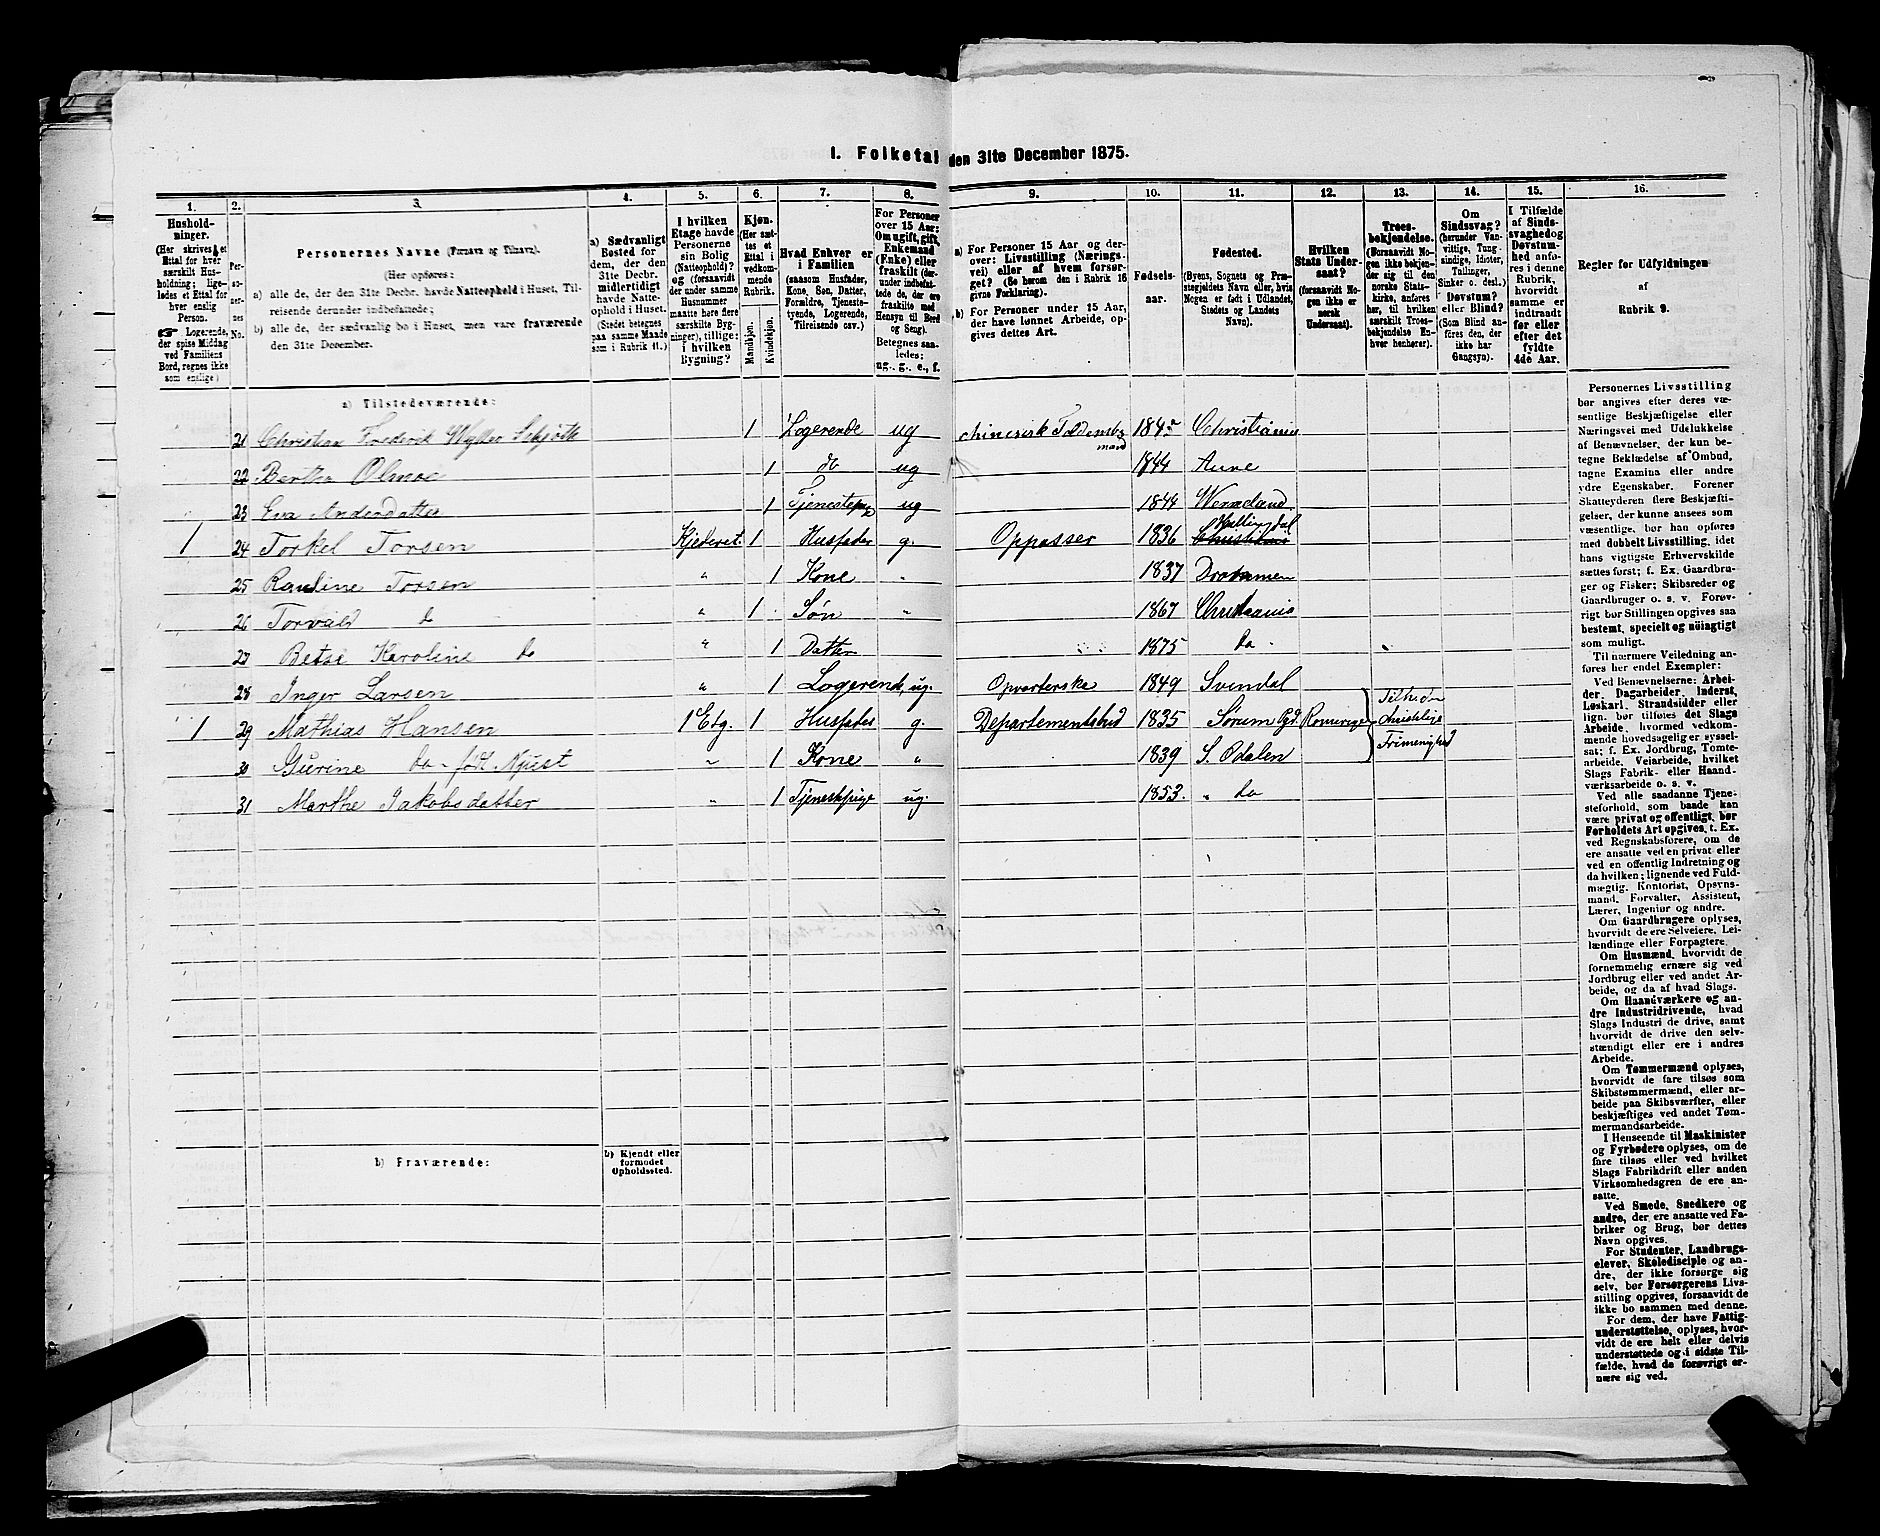 I. Folketal den 31te December 1875.
1. 2. 3. 4. 5. 6. 7. 8. 9. 10. 11. 12. 13. 14. 15. 16.
Husholdninger.
(Her skrives et
Ettal for hver
særskilt Husholdning;
ligeledes et Ettal for
hver enslig
Person.
☞ Logerende,
der spise Middag
ved Familiens
Bord, regnes ikke
som enslige)
Personernes No.
Personernes Navne (Fornavn og Tilnavn).
(Her opføres:
a) alle de, der den 31te Decbr. havde Natteophold i Huset, Tilreisende derunder indbefattede;
b) alle de, der sædvanlig bo i Huset, men vare fraværende
den 31te December.
a) Sædvanligt
Bosted for
dem, der den
31te Decbr.
midlertidigt
havde Natteophold i Huset.
(Stedet betegnes
paa samme Maade
som i Rubrik 11.)
I hvilken
Etage havde
Personerne
sin Bolig
(Natteophold)?
og (forsaavidt
der under samme
Husnummer
maatte høre flere
særskilte Bygninger), tillige:
i hvilken
Bygning?
Kjøn.
(Her sættes et
Ettal i
vedkommende
Rubrik.
Mandkjøn.
Kvindekjøn.
Hvad Enhver er
i Familien
(saasom Husfader,
Kone, Søn, Datter,
Forældre, Tjenestetyende, Logerende,
Tilreisende osv.)
For Personer
over 15 Aar:
Om ugift, gift,
Enkemand
(Enke) eller
fraskilt (derunder indbefattede de, der ere
fraskilte med
Hensyn til Bord
og Seng).
Betegnes saaledes:
ug., g., e., f.
a) For Personer 15 Aar og derover: Livsstilling (Næringsvei) eller af hvem forsørget? (Se herom den i Rubrik 16
givne Forklaring).
b) For Personer under 15 Aar,
der have lønnet Arbeide, opgives dettes Art.
Fødselsaar.
Fødested.
(Byens, Sognets og Præstegjeldets Navn eller, hvis
Nogen er født i Udlandet,
Stedets og Landets
Navn).
Hvilken
Stats Undersaat?
(forsaavidt Nogen ikke er
norsk
Undersaat).
Troesbekjendelse.
(Forsaavidt Nogen ikke bekjender sig til den
norske Statskirke, anføres
her, til hvilken
særskilt Troesbekjendelse Enhver henhører).
Om
Sindssvag?
(herunder Vanvittige, Tungsindige, Idioter,
Tullinger,
Sinker o. desl.)
Døvstum?
eller Blind?
(Som Blind anføres den, der
ikke har
Gangsyn).
I Tilfælde
af Sindssvaghed og
Døvstumhed anføres i denne
Rubrik,
hvorvidt
samme er
indtraadt
før eller
efter det
fyldte
4de Aar.
Regler for Udfyldningen
af
Rubrik 9.
a) Tilstedeværende:
21 Christian Frederik 1 Logerende ug chinesisk Toldembedsmand Christiania
22 Bertha 1 do ug 1844 Aune
23 Eva Andersdatter 1 Tjenestepige ug 1844 Wermland
1 24 Torkel Torsen Kjederet 1 Husfader g. Oppasser 1836 Christiania Hallingdal
25 Pauline Torsen " 1 Kone " 1837 Drammen
26 Torvald do " 1 Søn " 1867 Christiania
27 Betsi Karoline do " 1 Datter 1875 do
28 Inger Larsen " 1 Logerende ug. Opvarterske 1849 Svendal
1 29 Mathias Hansen 1 Etg. 1 Husfader g. Departementsbud 1835 Sørum Pgd. Romerige
30 Gurine do født " 1 Kone " 1839 S. Odalen
31 Marthe Jakobsdatter " 1 Tjenestepige ug. 1853. " do
christelige
Frimenighed
b) Fraværende:
b) Kjendt eller
formodet
Opholdssted.
Personernes Livsstilling
bør angives efter deres væsentlige Beskjæftigelse eller
Næringsvei med Udelukkelse
af Benævnelser, der kun betegne Beklædelse af Ombud,
tagne Examina eller andre
ydre Egenskaber. Forener
Skatteyderen flere Beskjæftigelser, der kunne ansees som
væsentlige, bør han opføres
med dobbelt Livsstilling, idet
hans vigtigste Erhvervskilde
sættes først; f. Ex. Gaardbruger og Fisker; Skibsreder og
Gaardbruger o. s. v. Forøvrigt bør Stillingen opgives saa
bestemt, specielt og nøiagtigt
som muligt.
Til nærmere Veiledning anføres her endel Exempler:
Ved Benævnelserne: Arbeider, Dagarbeider, Inderst,
Løskarl, Strandsidder eller
lign. bør tilføies det Slags
Arbeide, hvormed vedkommende hovedsagelig er sysselsat; f. Ex. Jordbrug, Tomtearbeide, Veiarbeide, hvilket
Slags Fabrik- eller Haandværksarbeide o. s. v.
Ved alle saadanne Tjenesteforhold, som baade kan
være privat og offentligt, bør
Forholdets Art opgives, t. Ex.
ved Regnskabsførere, om de
ere ansatte ved en privat eller
ved en offentlig Indretning og
da hvilken; lignende ved Fuldmægtig, Kontorist, Opsynsmand, Forvalter, Assistent,
Lærer, Ingeniør og andre.
Om Gaardbrugere oplyses,
hvorvidt de ere Selveiere, Leilændinge eller Forpagtere.
Om Husmænd, hvorvidt de
fornemmelig ernære sig ved
Jordbrug eller ved andet Arbeide, og da af hvad Slags.
Om Haandværkere og andre Industridrivende, hvad
Slags Industri de drive, samt
hvorvidt de drive den selvstændigt eller ere i andres
Arbeide.
Om Tømmermænd oplyses,
hvorvidt de fare tilsøs som
Skibstømmermænd, eller arbeide paa Skibsværfter, eller
beskjæftiges ved andet Tømmermandsarbeide.
I Henseende til Maskinister
og Fyrbødere oplyses, om de
fare tilsøs eller ved hvilket
Slags Fabrikdrift eller anden
Virksomhedsgren de ere ansatte.
Ved Smede, Snedkere og
andre, der ere ansatte ved Fabriker og Brug, bør dettes
Navn opgives.
For Studenter, Landbrugselever, Skoledisciple og andre, der ikke forsørge sig
selv, bør Forsørgerens Livsstilling opgives, forsaavidt de
ikke bo sammen med denne.
For dem, der have Fattigunderstøttelse, oplyses, hvorvidt de ere helt eller delvis
understøttede og i sidste Tilfælde, hvad de forøvrigt ernære sig ved.